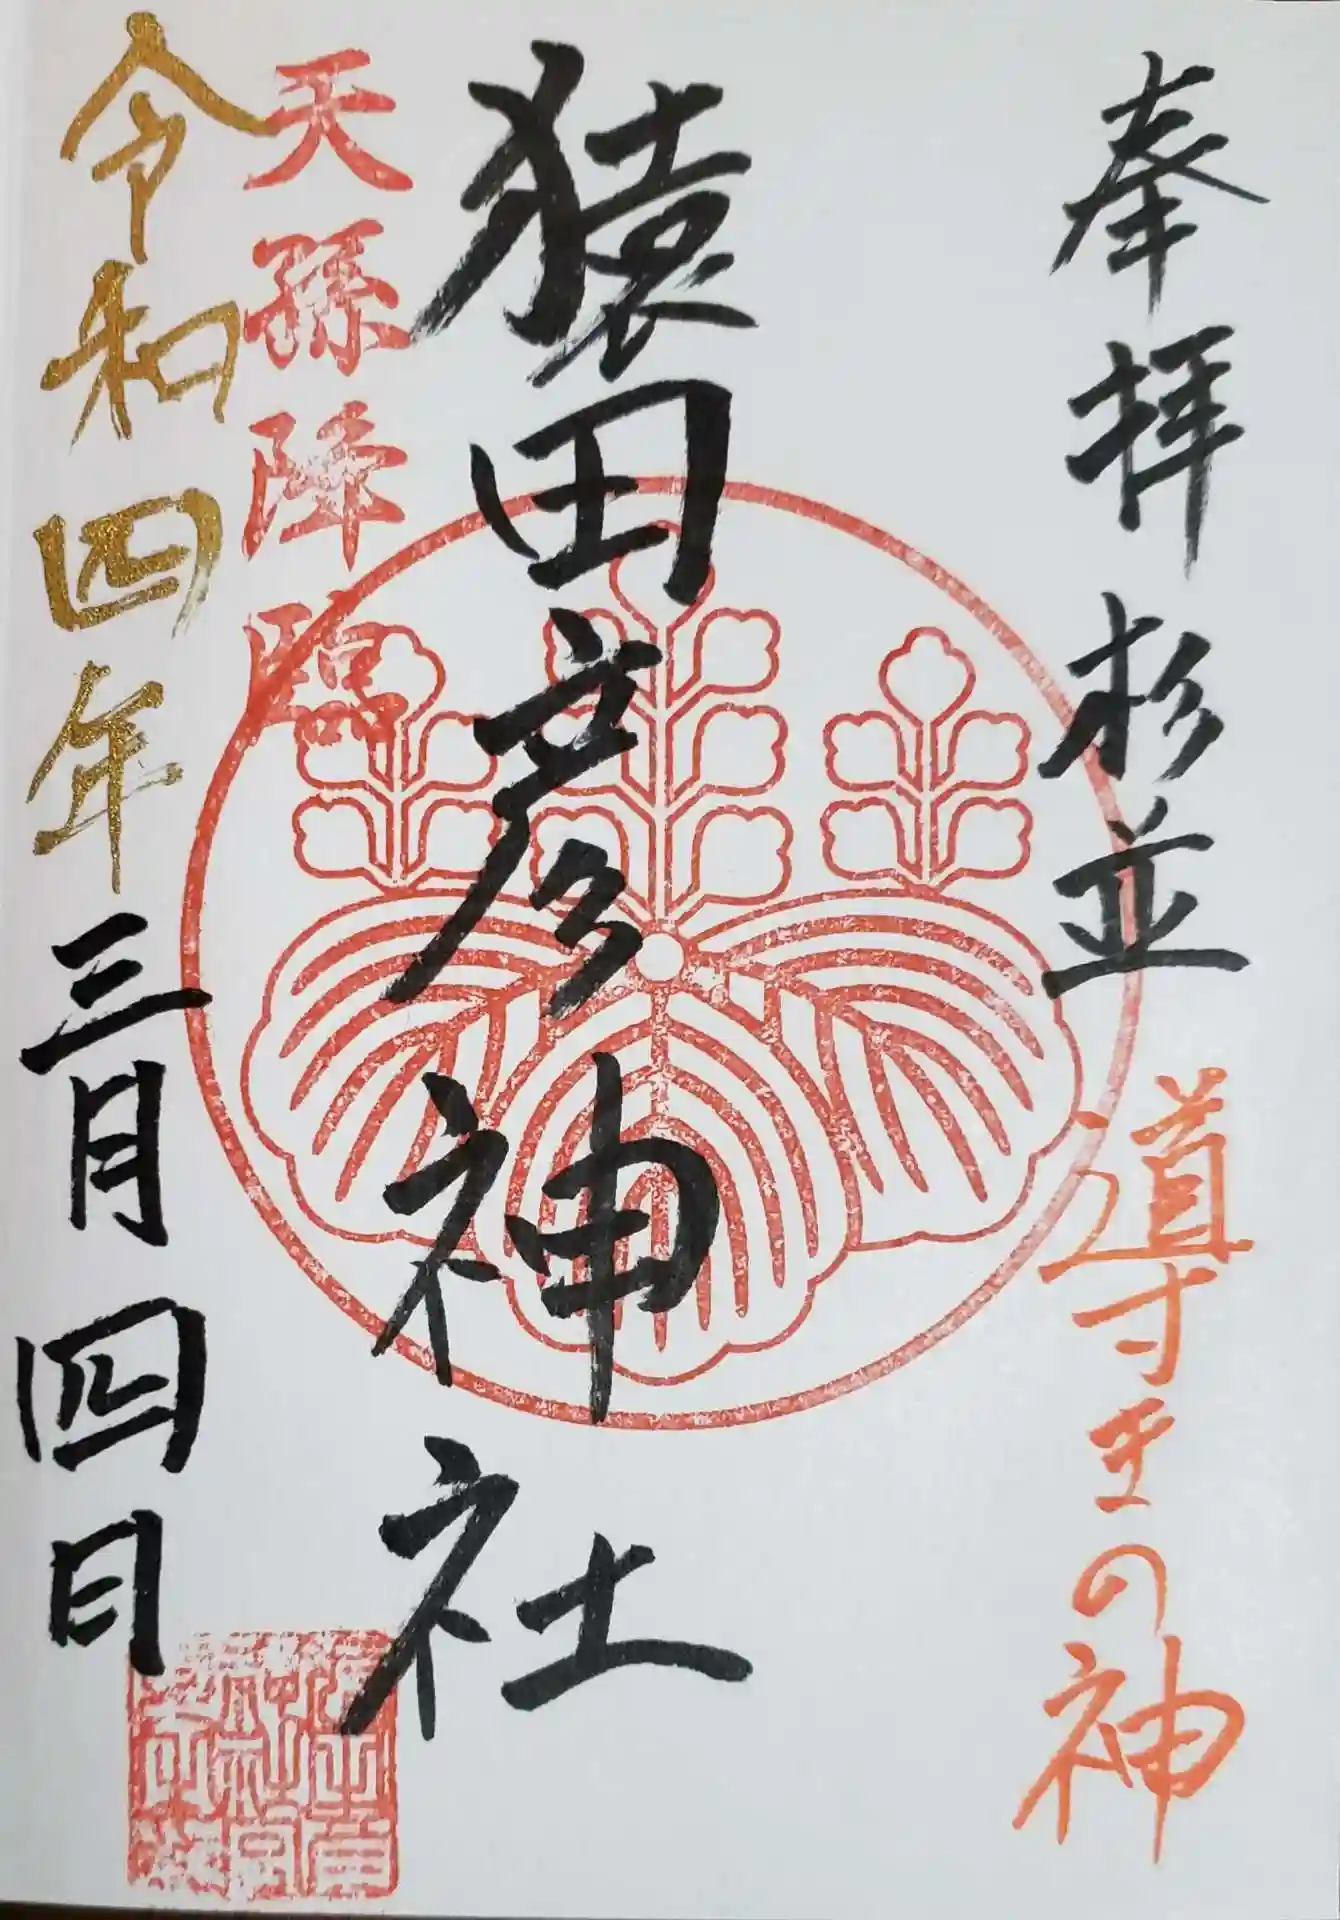 奉拝 杉並 導主の神
猿田彦神社
天孫降臨
令和四年三月四日